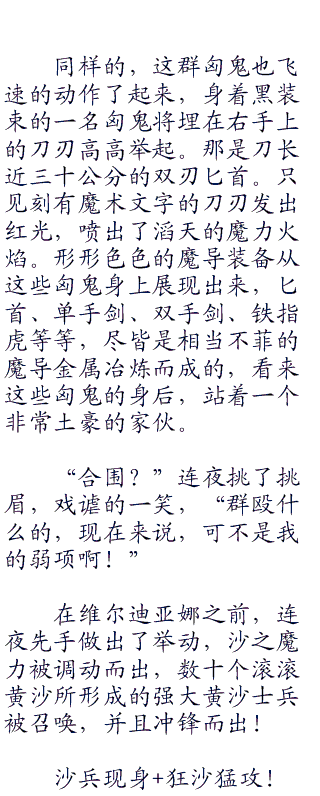 同样的，这群匈鬼也飞
速的动作了起来，身着黑装
束的一名匈鬼将埋在右手上
的刀刃高高举起。那是刀长
近三十公分的双刃匕首。只
见刻有魔术文字的刀刃发出
红光，喷出了滔天的魔力火
焰。形形色色的魔导装备从
这些匈鬼身上展现出来，匕
首、单手剑、双手剑、铁指
虎等等，尽皆是相当不菲的
魔导金属冶炼而成的，看来
这些匈鬼的身后，站着一个
非常土豪的家伙。
“合围？”连夜挑了挑
眉，戏谑的一笑，“群殴什
么的，现在来说，可不是我
的弱项啊！”
在维尔迪亚娜之前，连
夜先手做出了举动，沙之魔
力被调动而出，数十个滚滚
黄沙所形成的强大黄沙士兵
被召唤，并且冲锋而出！
沙兵现身+狂沙猛攻！